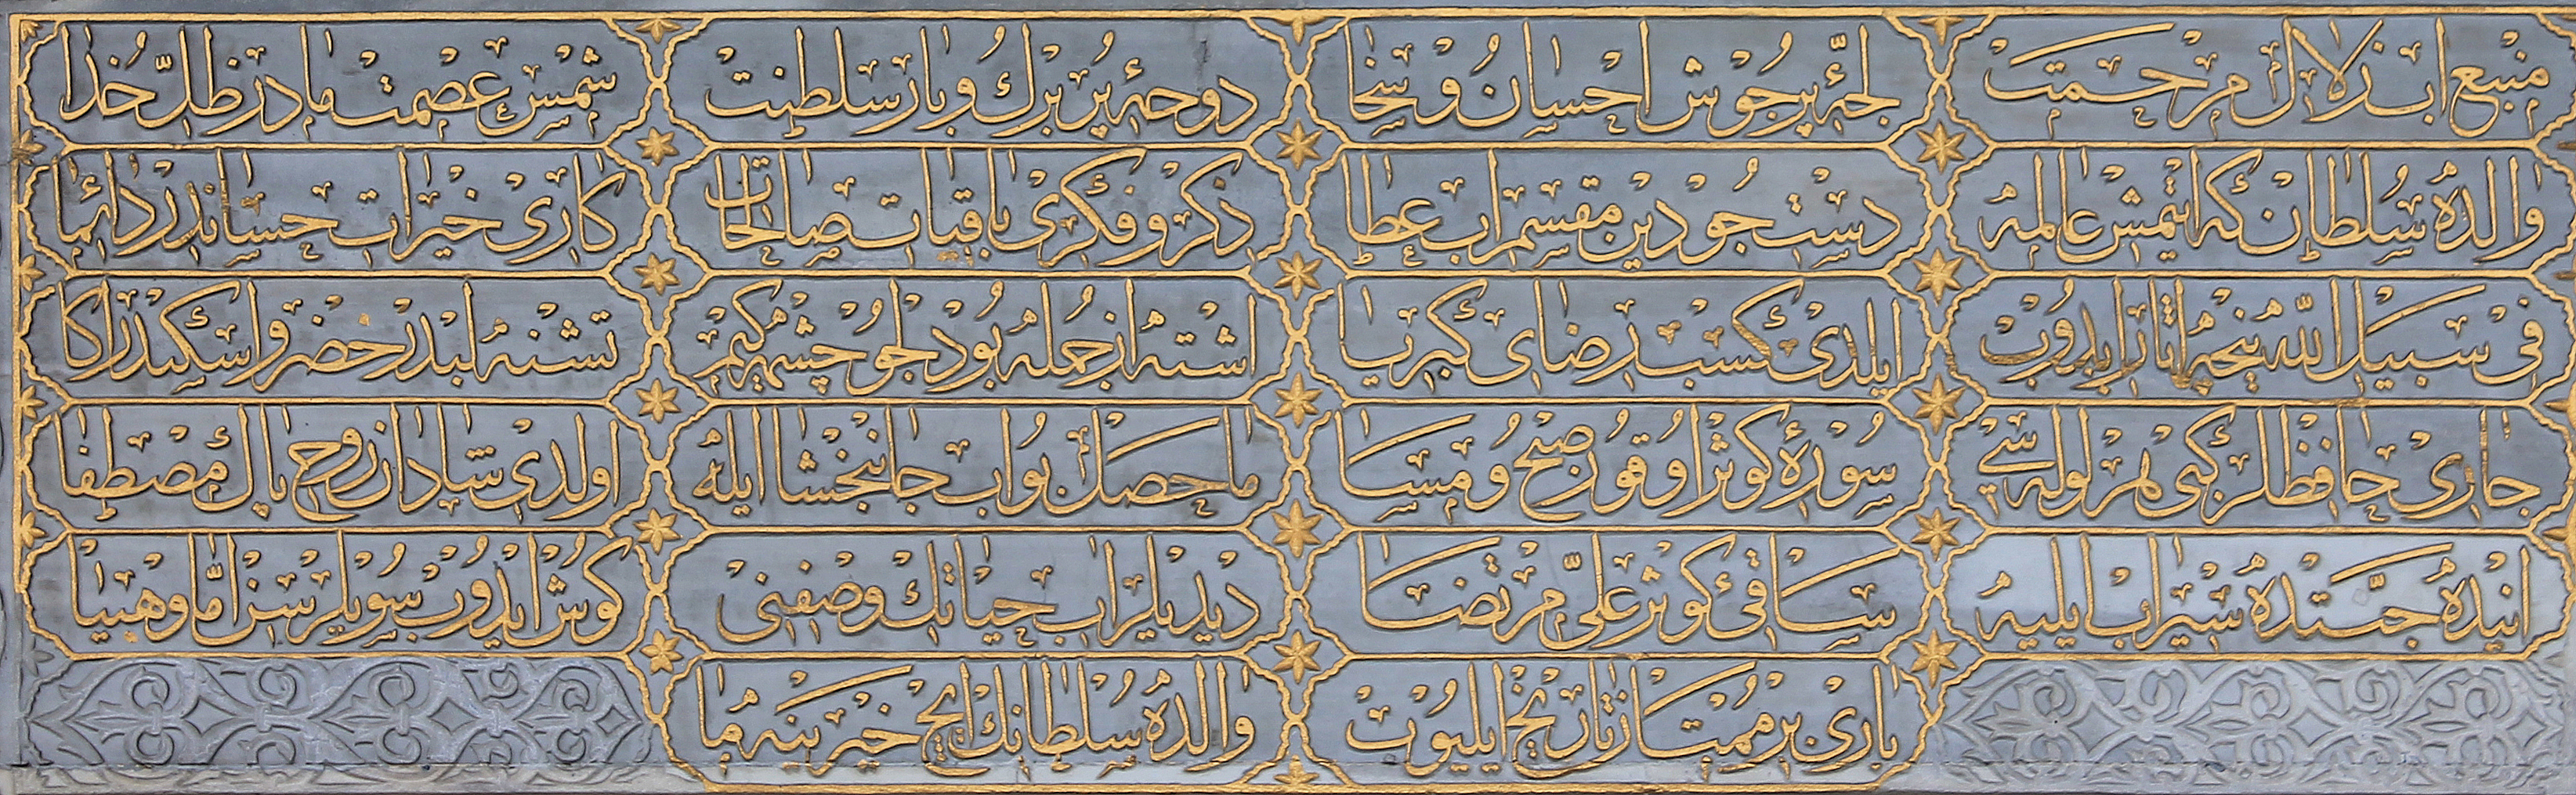 منبع آب زلال مرحمت
لجهٔ پر جوش احسان و سخا
دوحهٔ پر برك و بار سلطنت
شمس عصمت مادر ظل خدا
والده سلطان كه ایتمش عالمه
دست جودین مقسم آب عطا
ذكر و فكری باقیات صالحات
كاری خیرات حساندر دائما
فی سبیل الله نیجه آثار ایدوب
ایلدی كسب رضای كبریا
اشته از جمله بو دلجو چشمه كیم
تشنه لبدر خضر و اسكندر اكا
جاری حافظلر كبی هر لوله سی
سورهٔ كوثر اوقور صبح و مسا
ماحصل بو آب جانبخشا ایله
اولدی شادان روح پاك مصطفا
آنیده جنتده سیراب ایلیه
ساقی كوثر علی مرتضا
دیدیلر آب حیاتك وصفنی
كوش ایدوب سویلرسن اما وهبیا
باری بر ممتاز تاریخ ایلیوب
والده سلطانك ایچ خیرینه ما